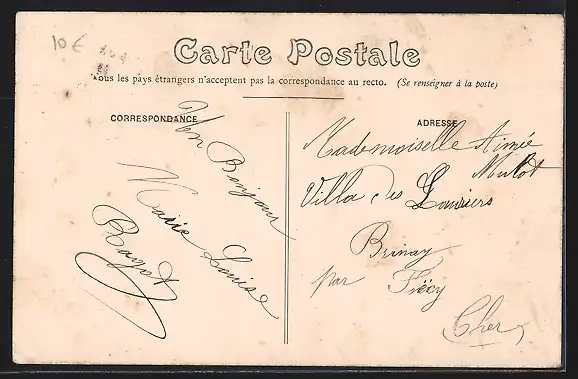 10 €
Carte Postale
Tous les pays étrangers n'acceptent pas la correspondance au recto. (Se renseigner à la poste)
CORRESPONDANCE
Un Bonjour
Marie Louise
Ragot
ADRESSE
Mademoiselle Aimée
Mulot
Villa des Lauriers
Brinay
par Foëcy
Cher